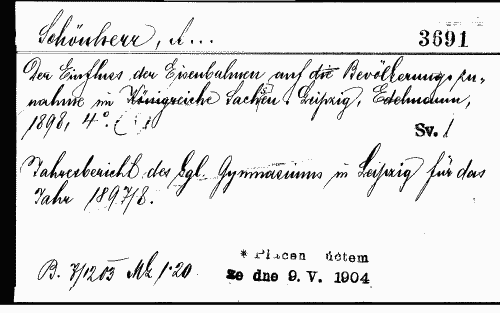 Schönherr, A...
3691
Der Einfluss der Eisenbahnen auf die Bevölkerungszu-
nahme im Königreiche Sachsen. Leipzig, Edelmann,
1898, 4°.
Sv. 1
Jahresbericht des Kgl. Gymnasiums in Leipzig für das
Jahr 1897/8.
B. 7/12 03 Mk 1·20
* Placen účtem
ze dne 9. V. 1904